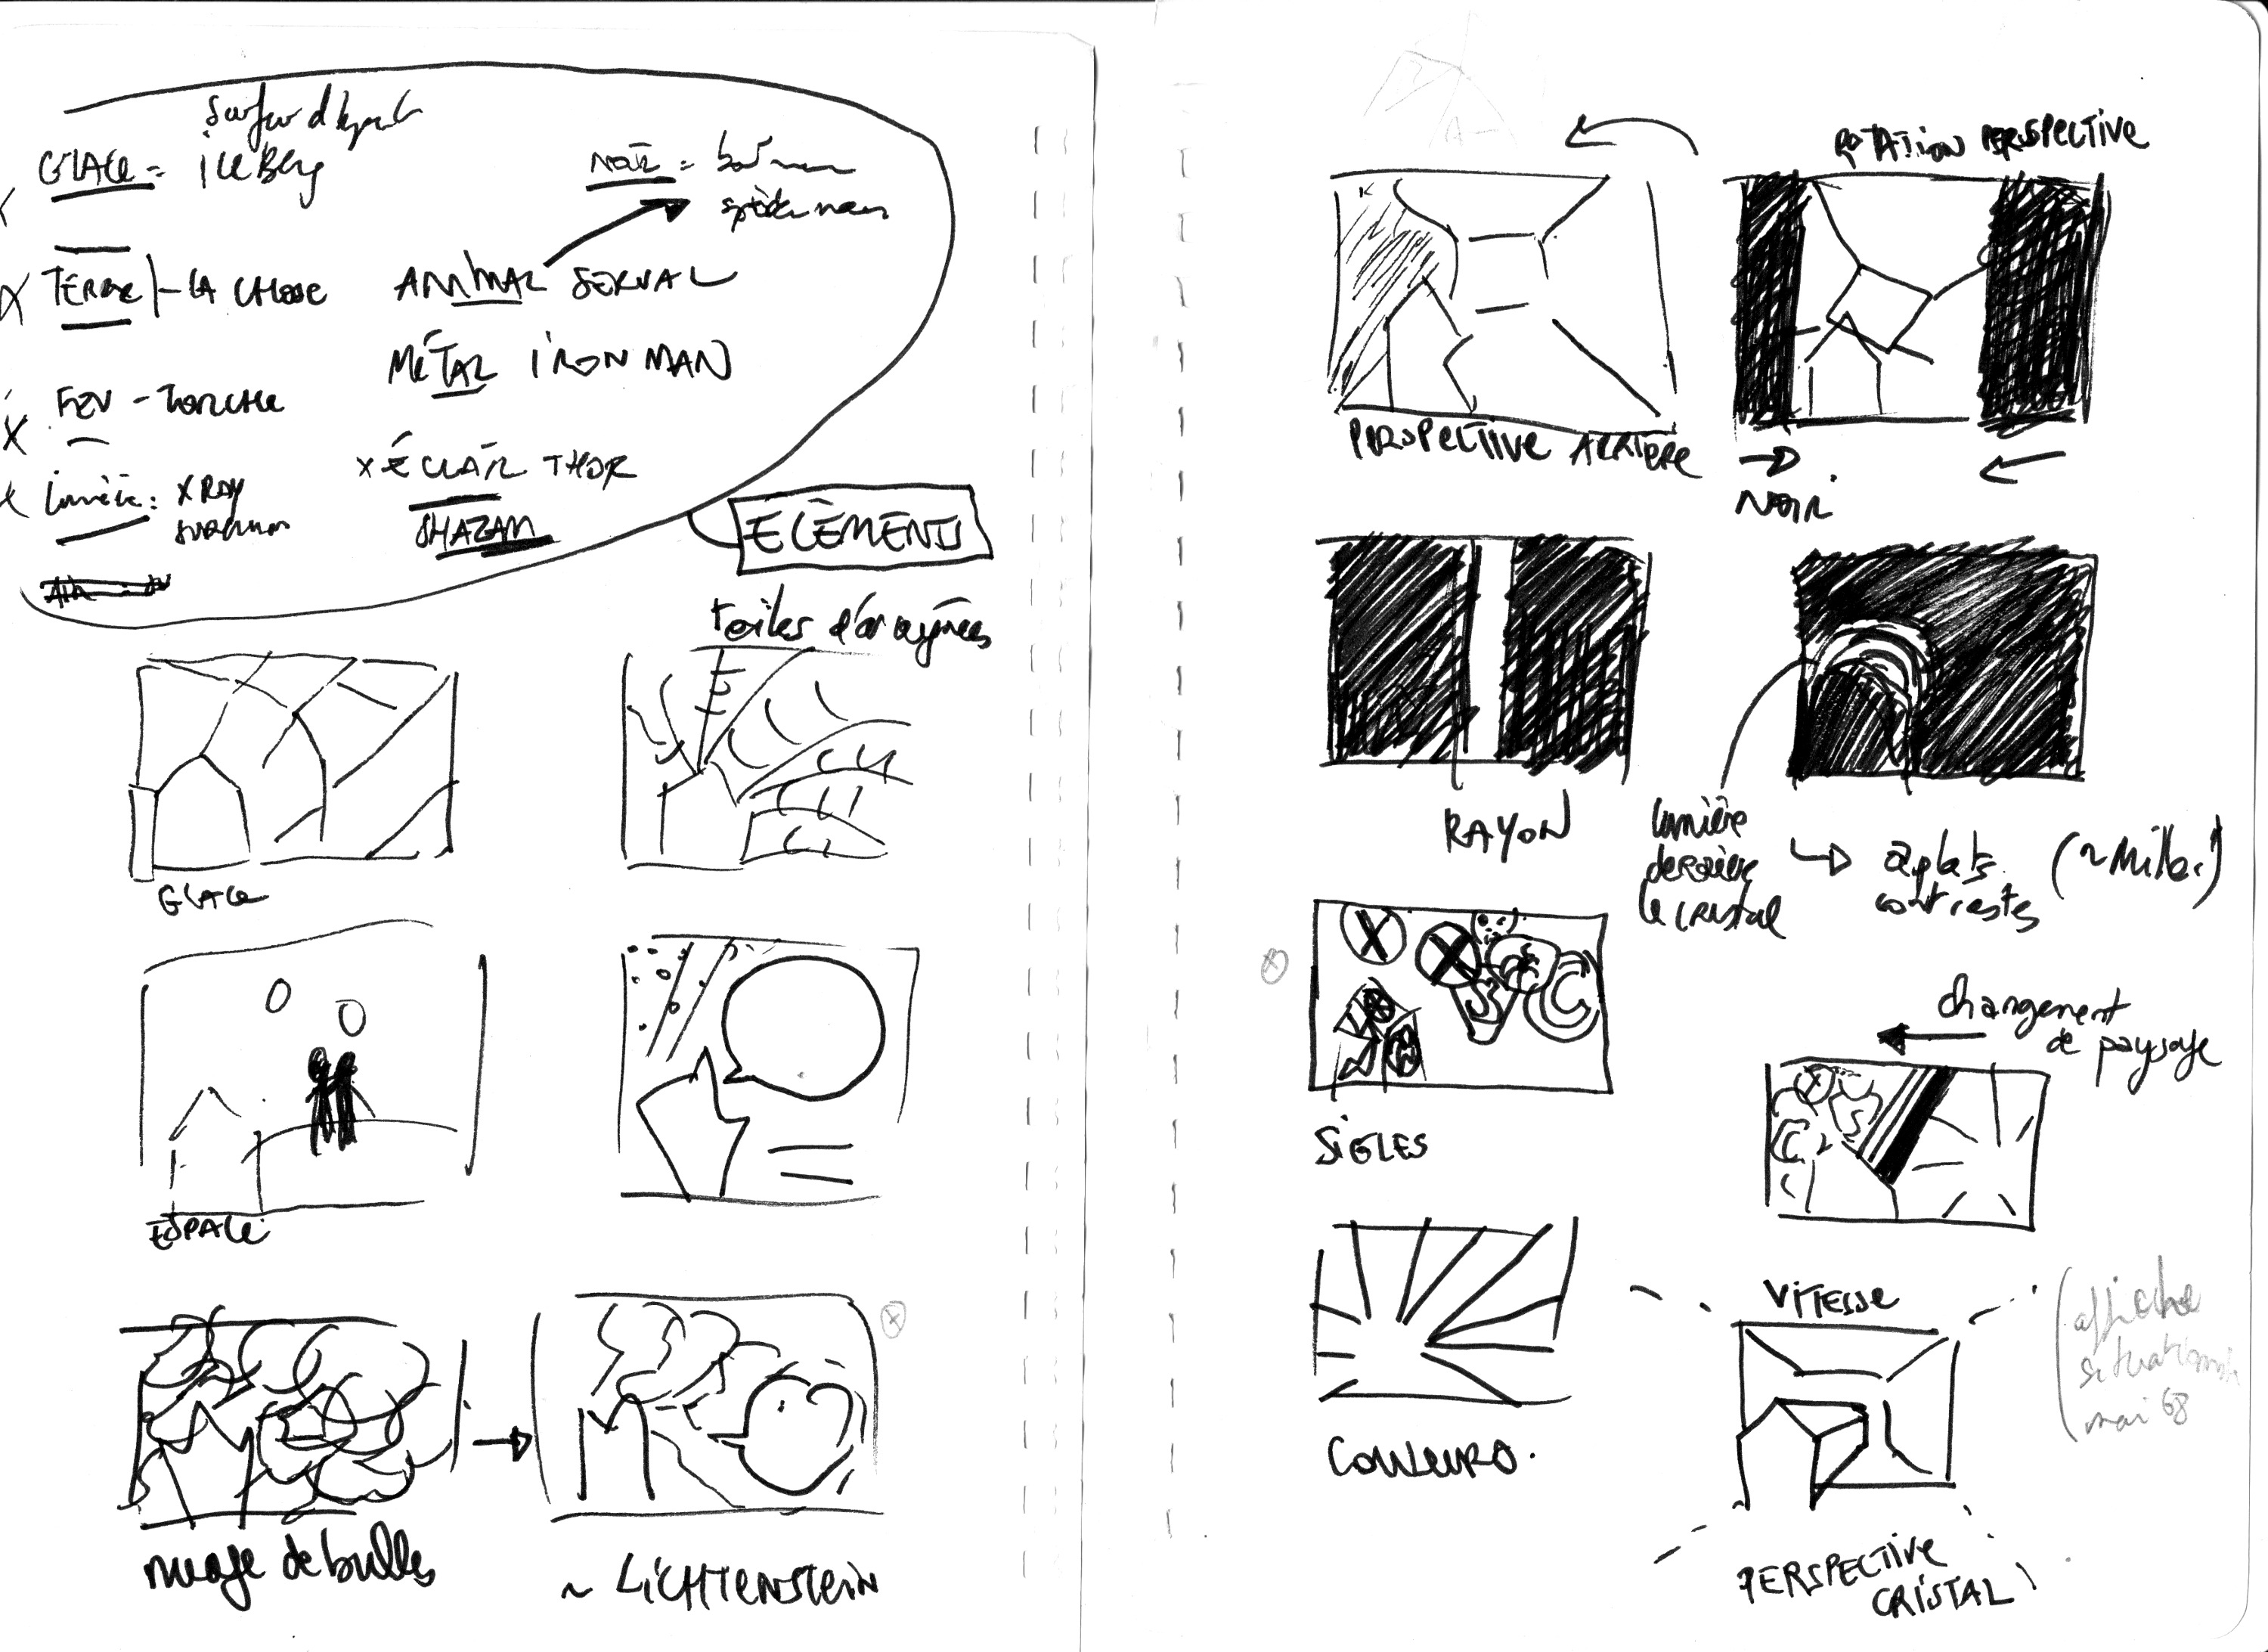 Surfer d'argent
GLACE = ICEBERG
NOIR = batman
spiderman
TERRE - LA CHOSE
ANIMAL SERVAL
MÉTAL IRON MAN
FEU - TORCHE
x ÉCLAIR THOR
SHAZAM
lumière : X RAY
superman
ELÉMENTS
toiles d'araignées
GLACE
ESPACE
nuage de bulles
~ LICHTENSTEIN
ROTATION PERSPECTIVE
PERSPECTIVE ARRIÈRE
NOIR
RAYON
lumière
derrière
le cristal
aplats
contrastés
(~Miller)
SIGLES
changement
de paysage
COULEURS.
VITESSE
PERSPECTIVE
CRISTAL
(affiche
situationniste
mai 68